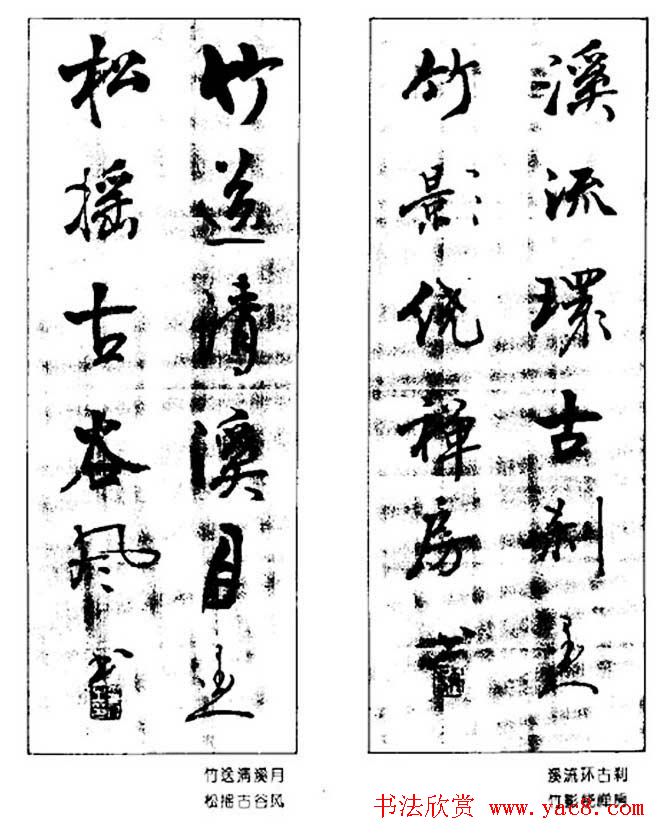 溪流環古刹
竹影绕禅房
竹送清溪月
松摇古谷风书
竹送清溪月
松摇古谷风
溪流环古刹
竹影绕禅房
书法欣赏 www.yac8.com